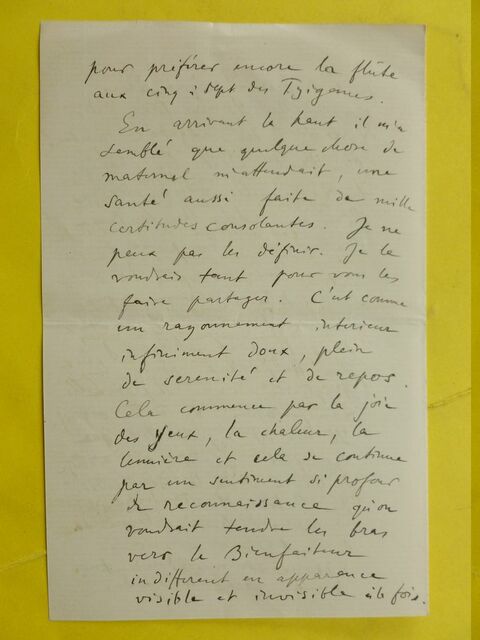 pour préférer encore la flûte
aux cinq à sept des Tziganes.
En arrivant là haut il m'a
semblé que quelque chose de
maternel m'attendait, une
santé aussi faite de mille
certitudes consolantes. Je ne
peux pas les définir. Je le
voudrais tant pour vous les
faire partager. C'est comme
un rayonnement interieur
infiniment doux, plein
de serenité et de repos.
Cela commence par la joie
des yeux, la chaleur, la
lumière et cela se continue
par un sentiment si profond
de reconnaissance qu'on
voudrait tendre les bras
vers le Bienfaiteur
indifferent en apparence
visible et invisible à la fois.